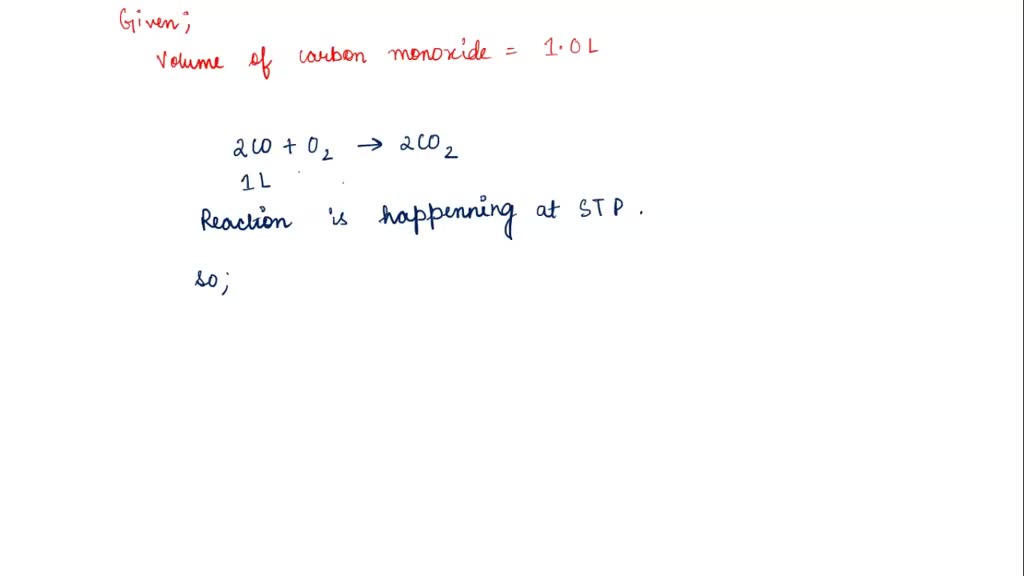 Given;
Volume of carbon monoxide = 1.0 L
2CO + O₂ → 2CO₂
1 L
Reaction is happenning at STP.
so;